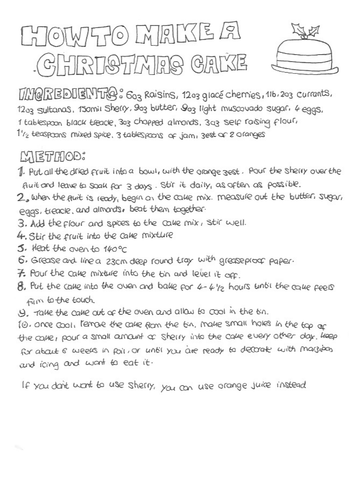 HOW TO MAKE A
CHRISTMAS CAKE
INGREDIENTS: 6oz Raisins, 12oz glacé cherries, 1lb 2oz currants,
12oz sultanas, 150ml Sherry, 9oz butter, 9oz light muscovado sugar, 4 eggs,
1 tablespoon black treacle, 3oz chopped almonds, 3oz self raising flour,
1½ teaspoons mixed spice, 3 tablespoons of jam, zest of 2 oranges
METHOD:
1. Put all the dried fruit into a bowl, with the orange zest. Pour the sherry over the
fruit and leave to soak for 3 days. Stir it daily, as often as possible.
2. When the fruit is ready, begin on the cake mix. measure out the butter, sugar,
eggs, treacle, and almonds, beat them together.
3. Add the flour and spices to the cake mix, stir well.
4. Stir the fruit into the cake mixture
5. Heat the oven to 140°C
6. Grease and line a 23cm deep round tray with greaseproof paper.
7. Pour the cake mixture into the tin and level it off.
8. Put the cake into the oven and bake for 4-4½ hours until the cake feels
firm to the touch.
9. Take the cake out of the oven and allow to cool in the tin.
10. once cool, remove the cake from the tin, make small holes in the top of
the cake, pour a small amount of sherry into the cake every other day. keep
for about 6 weeks in foil, or until you are ready to decorate with marzipan
and icing and want to eat it.
If you don't want to use sherry, you can use orange juice instead